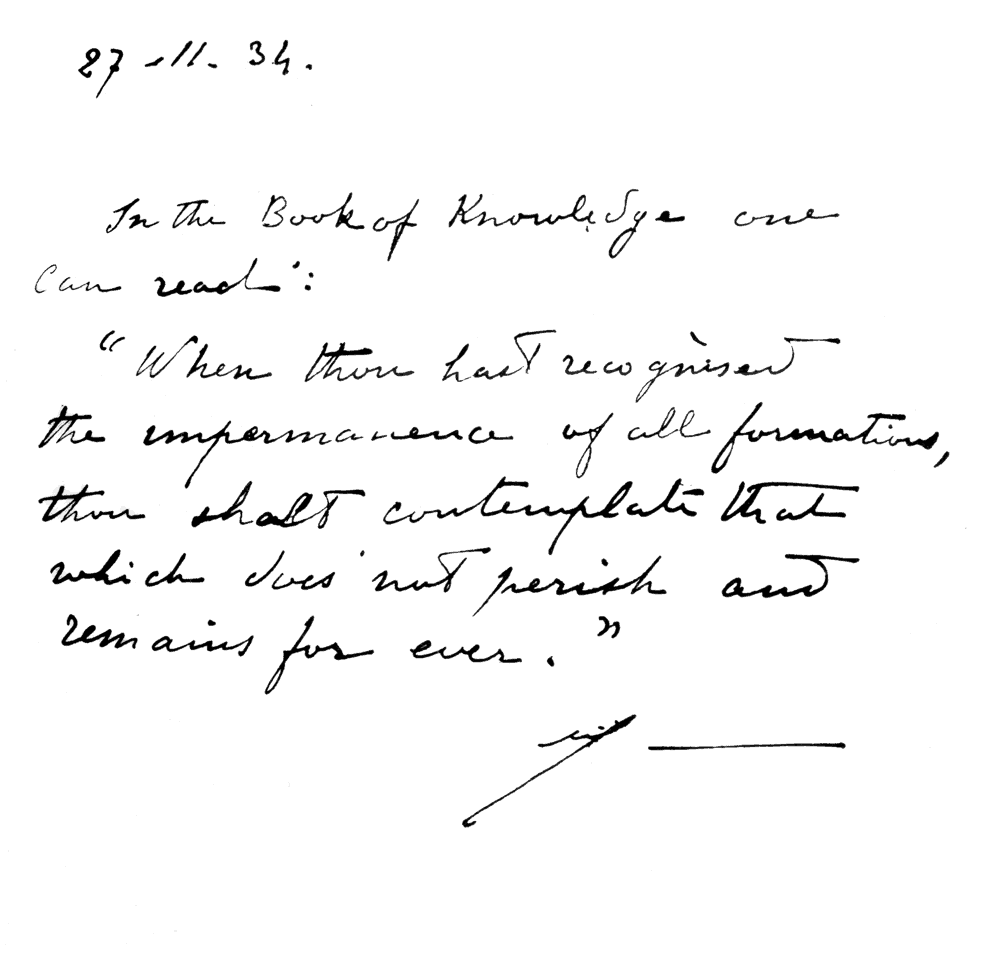 27-11-34.
In the Book of Knowledge one
can read:
"When thou hast recognised
the impermanence of all formations,
thou shalt contemplate that
which does not perish and
remains for ever."